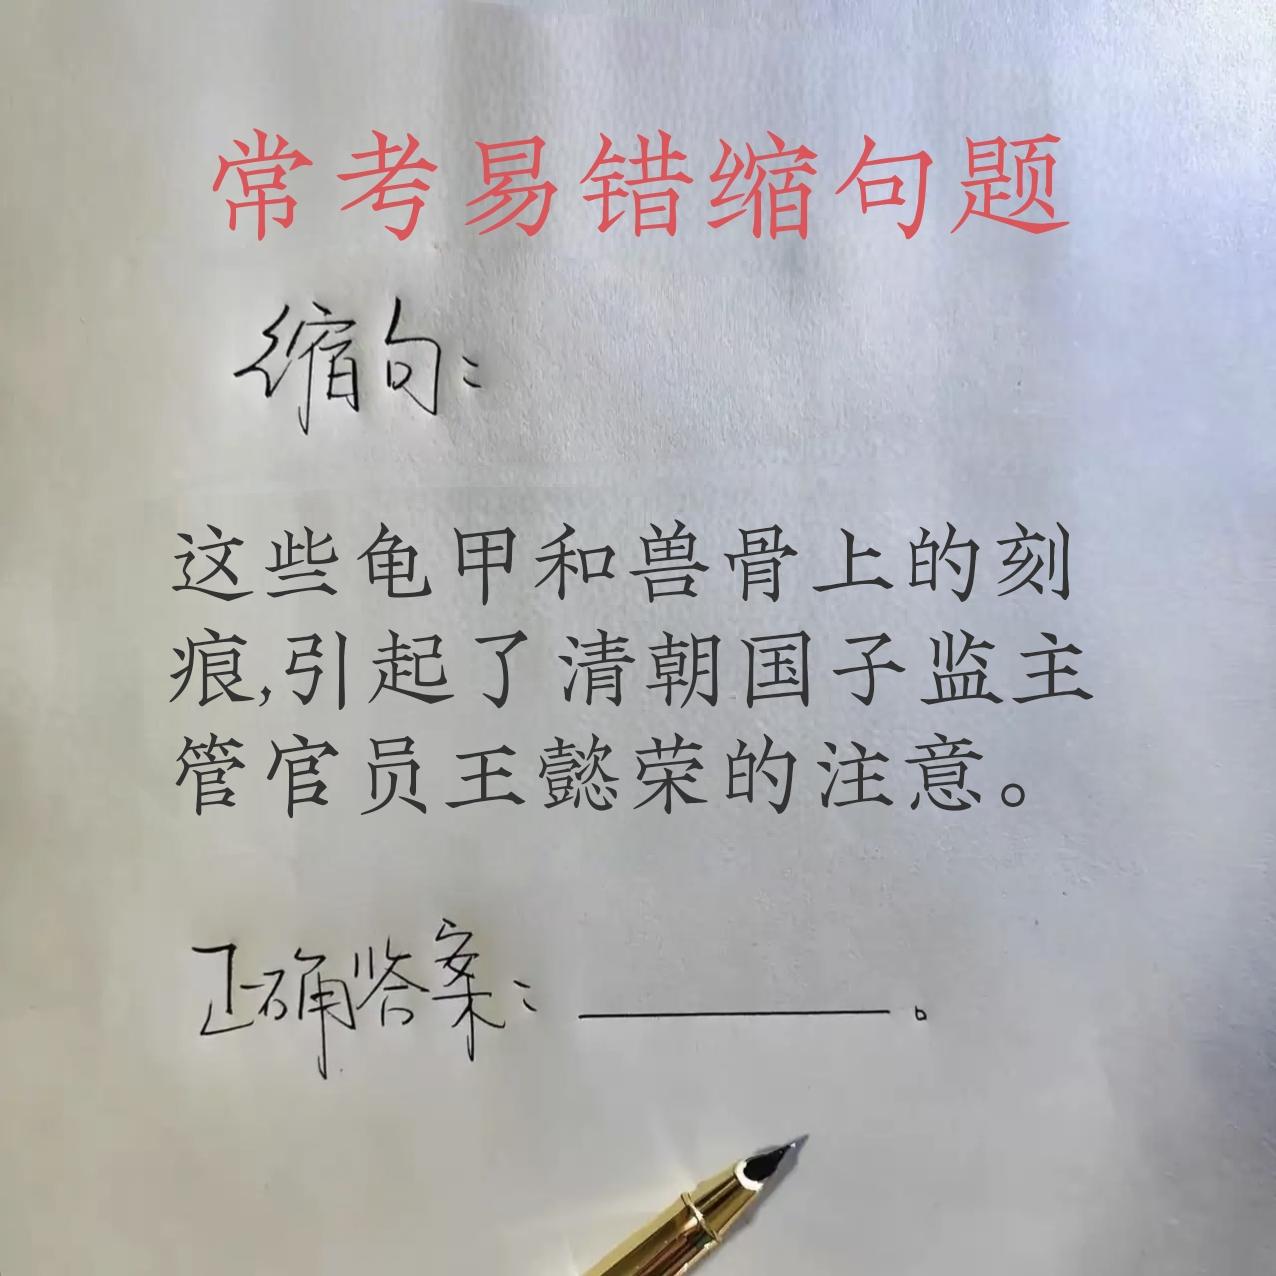 常考易错缩句题
缩句:
这些龟甲和兽骨上的刻
痕,引起了清朝国子监主
管官员王懿荣的注意。
正确答案:________。